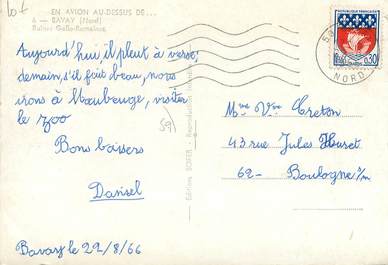 lot
EN AVION AU-DESSUS DE...
6 — BAVAY (Nord)
Ruines Gallo-Romaines.
Aujourd'hui il pleut à verse;
demain, s'il fait beau, nous
irons à Maubeuge, visiter
le zoo
Bons baisers
Daniel
Bavay le 22/8/66
59
Editions SOFER - Reproduction interdite
REPUBLIQUE FRANÇAISE
0,30
NORD
Mme Vve Creton
43 rue Jules Huret
62- Boulogne s/m